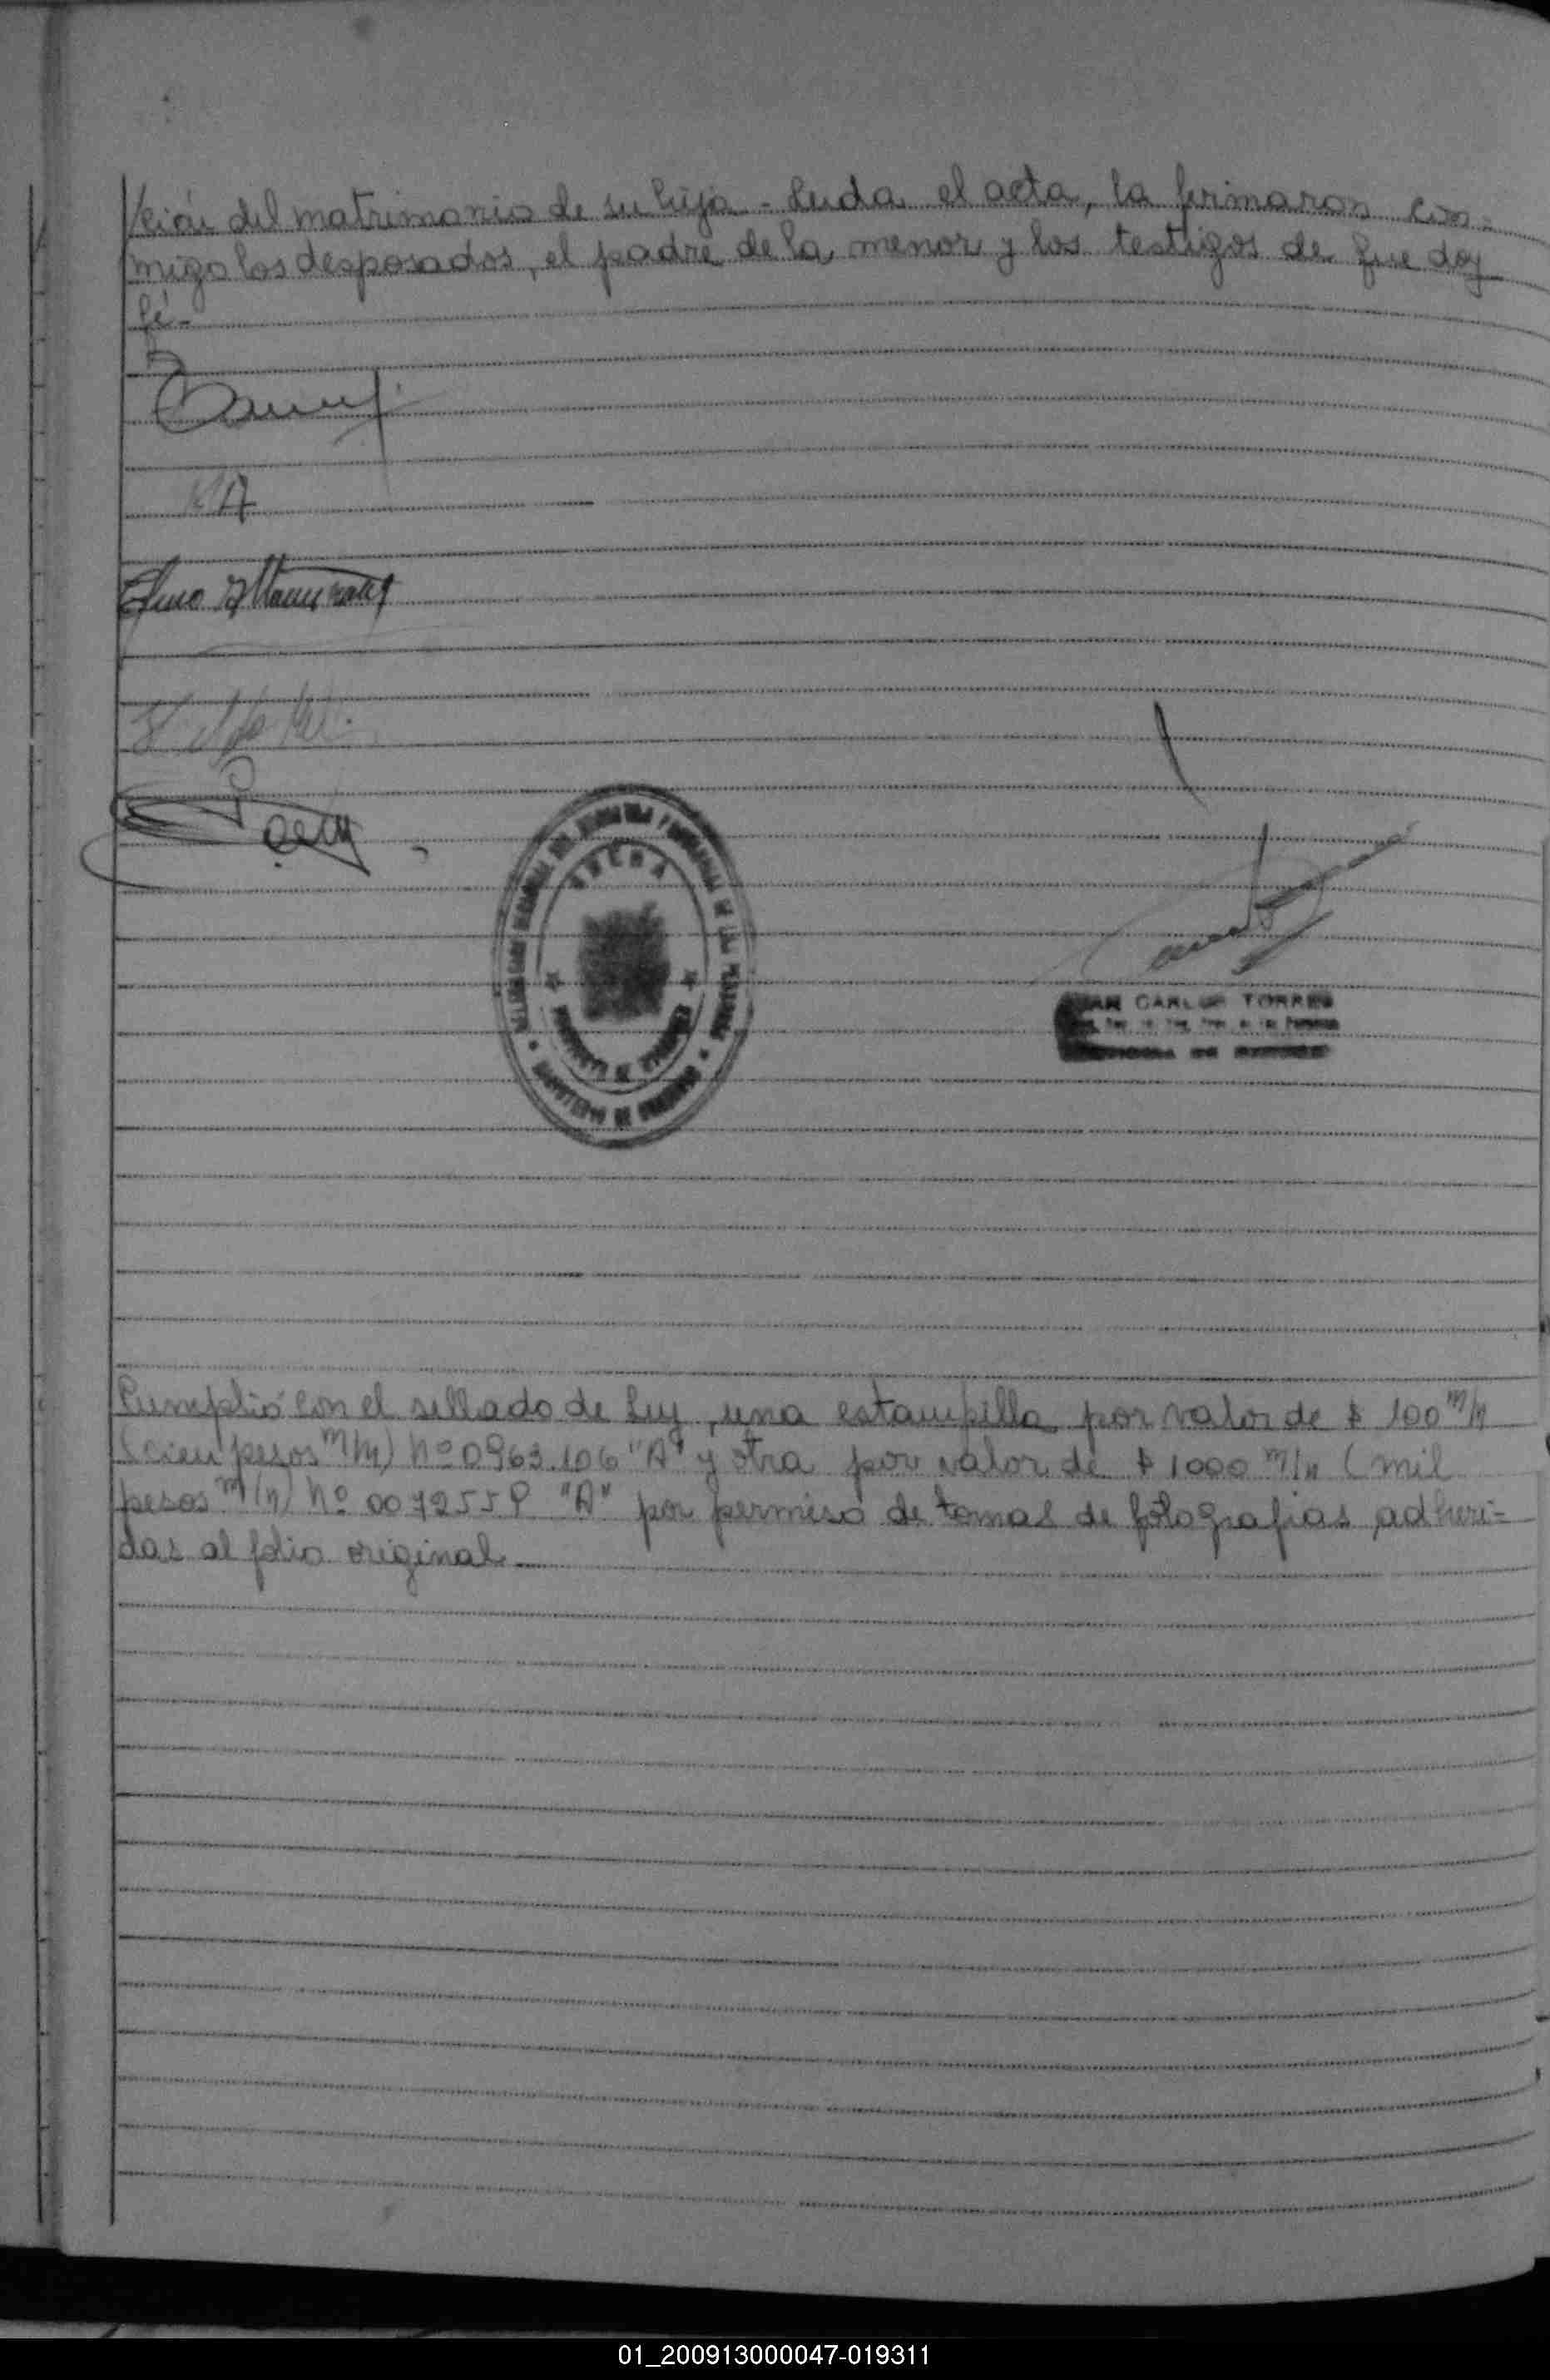 ción del matrimonio de su hija - Leida el acta, la firmaron con=
migo los desposados, el padre de la menor y los testigos de que doy
fé.-
JUAN CARLOS TORRES
Cumplió con el sellado de Ley, una estampilla por valor de $ 100 m/n
(cien pesos m/n) Nº 0963.106 "A" y otra por valor de $ 1000 m/n (mil
pesos m/n) Nº "A" por permiso de tomas de fotografias adheri=
das al folio original.
01_200913000047-019311